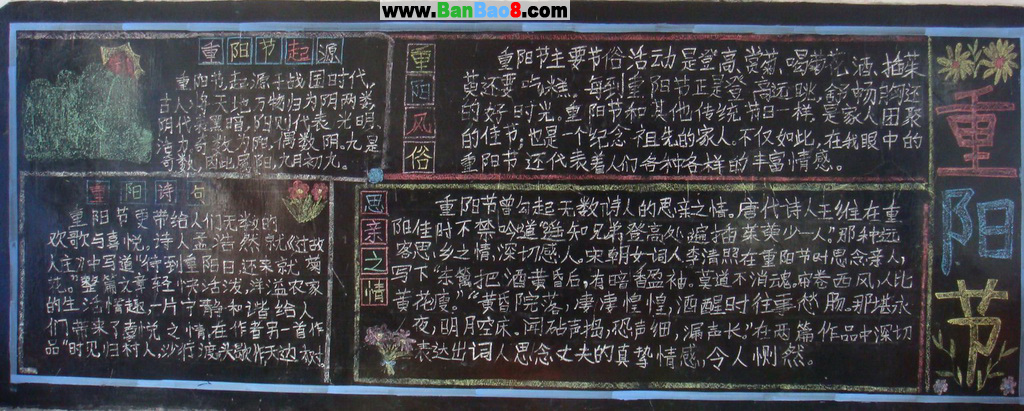 www.BanBao8.com
重阳节起源
重阳节,起源于战国时代,
古人将天地万物归为阴阳两类,
阴代表黑暗,阳则代表光明,
活力。奇数为阳,偶数阴。九是
奇数,因此属阳,九月初九。
重阳风俗
重阳节主要节俗活动是登高、赏菊、喝菊花酒、插茱
萸还要吃糕。每到重阳节正是登高远眺,舒畅胸怀
的好时光。重阳节和其他传统节日一样,是家人团聚
的佳节;也是一个纪念祖先的家人。不仅如此,在我眼中的
重阳节还代表着人们各种各样的丰富情感。
重阳节
重阳诗句
重阳节更带给人们无数的
欢歌与喜悦。诗人孟浩然就《过故
人庄》中写道"待到重阳日,还来就菊
花。"整篇文章轻快活泼,洋溢农家
的生活情趣,一片宁静和谐给人
们带来了喜悦之情,在作者另一首作
品"时见归村人,沙行渡头歇,作天边树
思亲之情
重阳节曾勾起无数诗人的思亲之情。唐代诗人王维在重
阳佳时不禁吟道"遥知兄弟登高处,遍插茱萸少一人"。那种远
客思乡之情,深切感人。宋朝女词人李清照在重阳节时思念亲人,
写下"东篱把酒黄昏后,有暗香盈袖。莫道不消魂。帘卷西风,人比
黄花瘦。""黄昏院落,凄凄惶惶,酒醒时往事愁肠。那堪永
夜,明月空床。闻砧声捣,蛩声细,漏声长。"在两篇作品中深切
表达出词人思念丈夫的真挚情感,令人恻然。